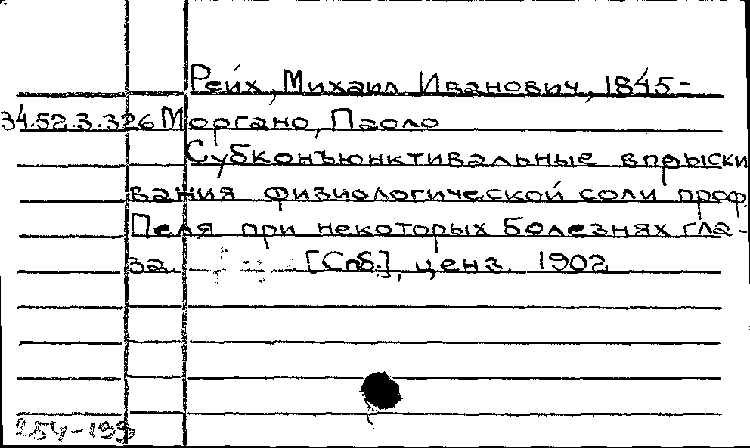 Рейх, Михаил Иванович, 1845-
34.52.3.326 Моргано, Паоло
Субконъюнктивальные впрыски
вания физиологической соли проф
Пеля при некоторых болезнях гла-
за. [Спб.], ценз. 1902
254-199